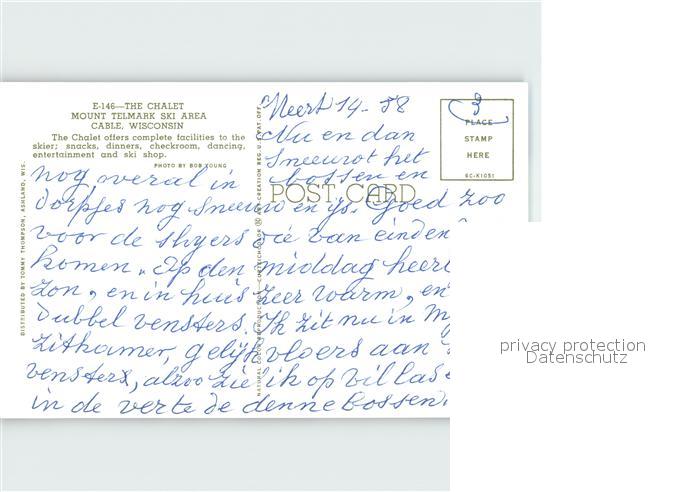 E-146—THE CHALET
MOUNT TELMARK SKI AREA
CABLE, WISCONSIN
The Chalet offers complete facilities to the
skier; snacks, dinners, checkroom, dancing,
entertainment and ski shop.
PHOTO BY BOB YOUNG
DISTRIBUTED BY TOMMY THOMPSON, ASHLAND, WIS.
POST CARD
3
PLACE
STAMP
HERE
6C-K1051
14-58
Nu en dan
het
nog overal in bossen en
dorpjes nog sneeuw en ys. Goed zoo
voor de van einden
komen. Op den middag
zon, en in huis zeer warm, en
dubbel vensters. Ik zit nu in
zitkamer, gelijk vloers aan
vensters, alzoo zie ik op
in de verte de denne bossen.
privacy protection
Datenschutz